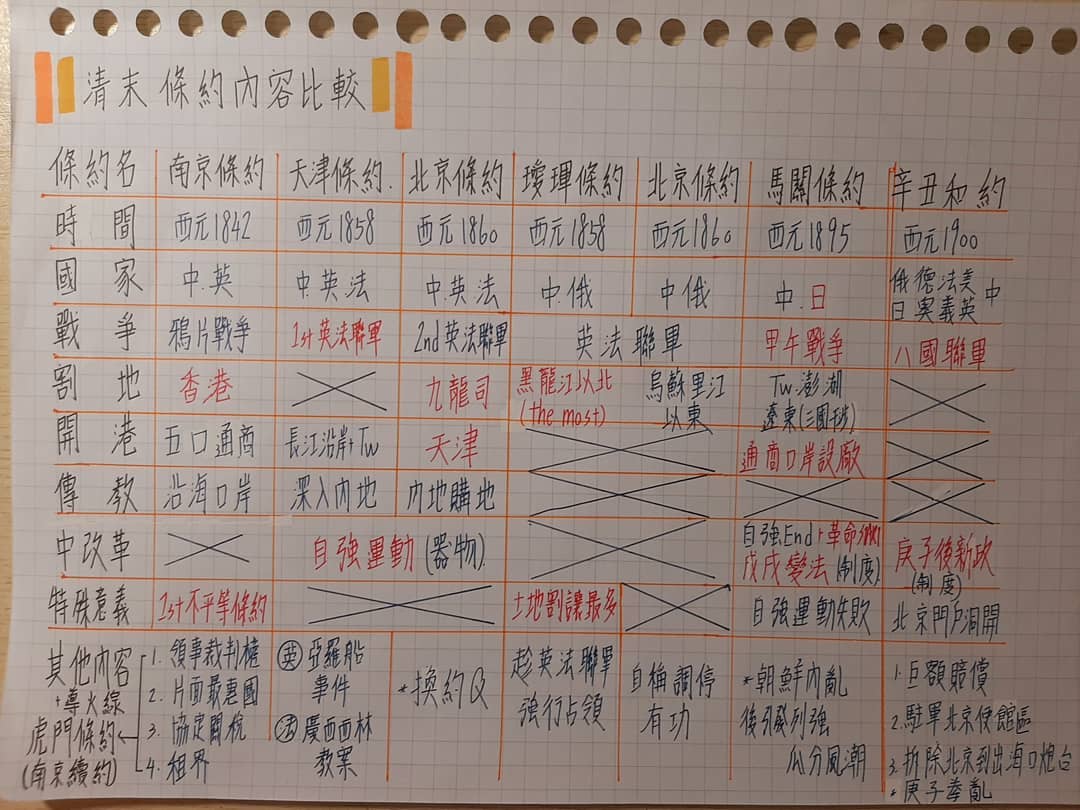 清末條約內容比較
條約名 南京條約 天津條約. 北京條約 璦琿條約 北京條約 馬關條約 辛丑和約
時間 西元1842 西元1858 西元1860 西元1858 西元1860 西元1895 西元1900
國家 中.英 中.英.法 中.英.法 中.俄 中.俄 中.日 俄德法美日奧義英 中
戰爭 鴉片戰爭 1st英法聯軍 2nd英法聯軍 英法聯軍 甲午戰爭 八國聯軍
割地 香港 九龍司 黑龍江以北 (the most) 烏蘇里江以東 Tw.澎湖 遼東(三國干涉)
開港 五口通商 長江沿岸+Tw 天津 通商口岸設廠
傳教 沿海口岸 深入內地 內地購地
中改革 自強運動(器物) 自強End+革命 戊戌變法(制度) 庚子後新政(制度)
特殊意義 1st不平等條約 土地割讓最多 自強運動失敗 北京門戶洞開
其他內容
+導火線
虎門條約
(南京續約)
1. 領事裁判權
2. 片面最惠國
3. 協定關稅
4. 租界
英 亞羅船
事件
法 廣西西林
教案
*換約Q
趁英法聯軍
強行占領
自稱調停
有功
*朝鮮內亂
後引發列強
瓜分風潮
1.巨額賠償
2.駐軍北京使館區
3.拆除北京到出海口炮台
*庚子拳亂